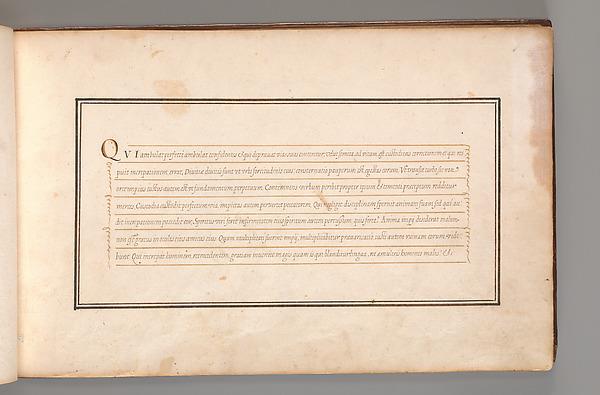 QVI ambulat perfecte ambulat confidenter, & qui depravat vias suas contemnetur, vitae semita ad vitam est custodienti correctionem et qui res
puit increpationem errat, Divitiae divitis sunt ut urbs fortitudinis eius: consternatio pauperum est egestas eorum. Ut transit turbo sic non
erit impius iustus autem est in fundamentum perpetuum. Contemnens verbum peribit propter ipsum & timenti praeceptum redditur
merces, Custodia custodit perfectum viae, impietas autem pervertet peccatorem. Qui negligit disciplinem spernit animam suam sed qui au
dit increpationem possidet cor, Spiritus viri feret infirmitatem eius spiritum autem percussum, quis feret? Anima impij desiderat malum,
non est gratus in oculis eius amicus eius Quum multiplicati fuerint impij, multiplicabitur praevaricatio iusti autem ruinam eorum vide
bunt Qui increpat hominem, ut emendet eum, gratiam inveniet magis quam is qui blanditur lingua, ne aemuleris homines malos: &c